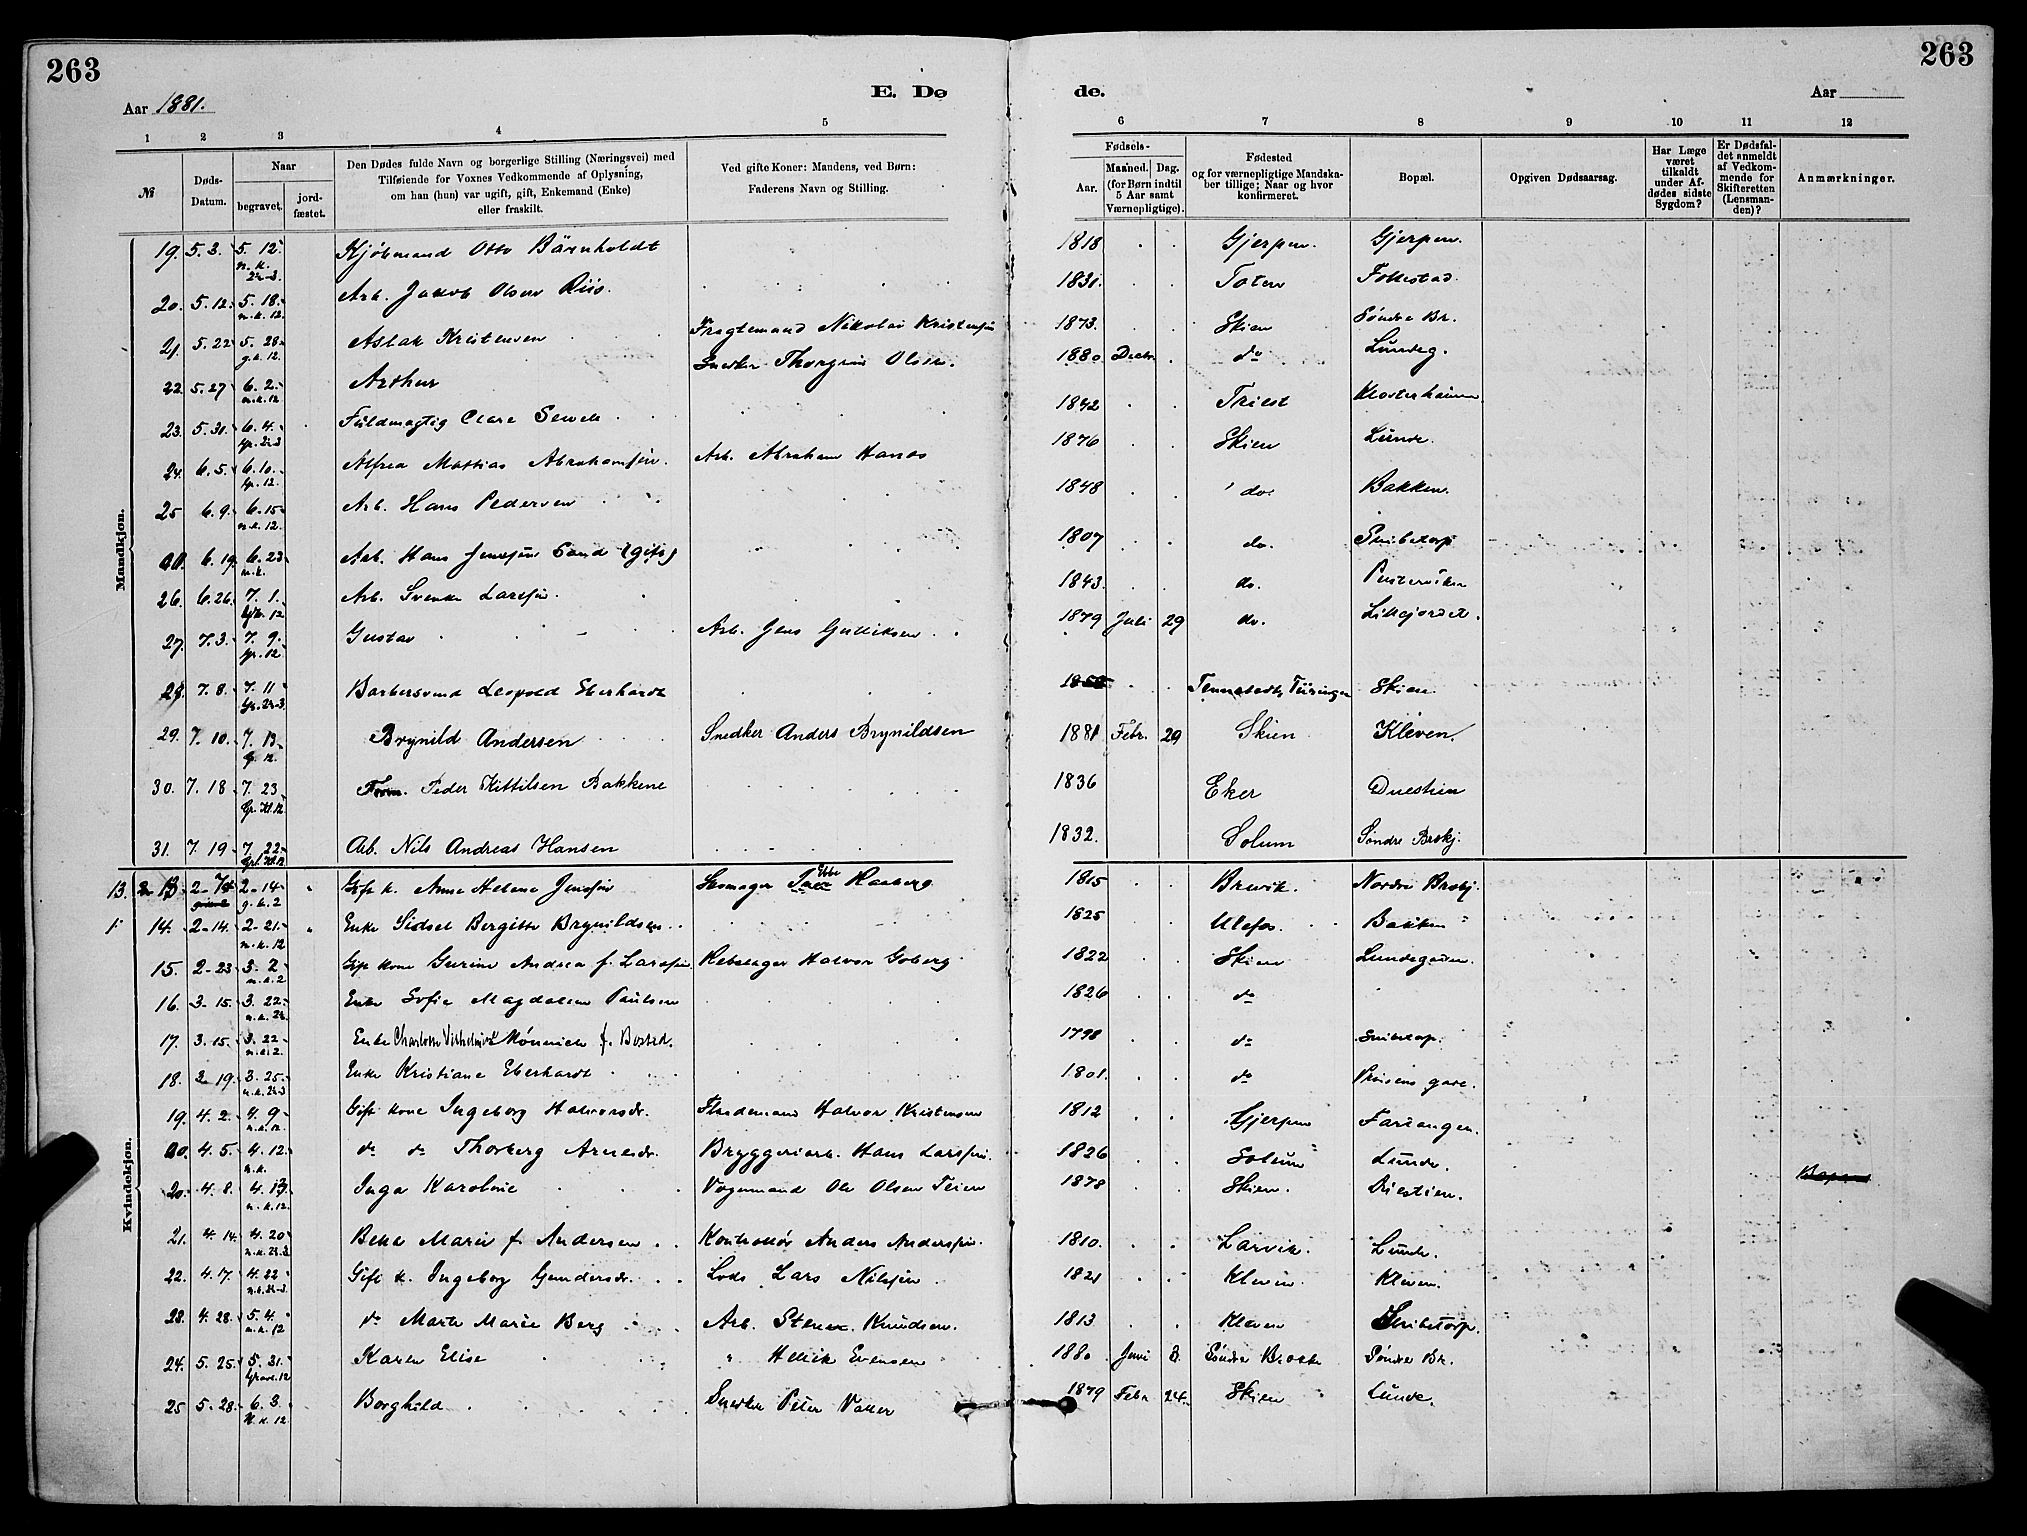 263
263
Aar 1881.
E. Dø
de.
Aar
1 2 3 4 5 6 7 8 9 10 11 12
№
Døds-Datum.
Naar
begravet.
jord-fæstet.
Den Dødes fulde Navn og borgerlige Stilling (Næringsvei) med
Tilføiende for Voxnes Vedkommende af Oplysning,
om han (hun) var ugift, gift, Enkemand (Enke)
eller fraskilt.
Ved gifte Koner: Mandens, ved Børn:
Faderens Navn og Stilling.
Fødsels-
Aar.
Maaned. Dag.
(for Børn indtil
5 Aar samt
Værnepligtige).
Fødested
og for værnepligtige Mandska-
ber tillige; Naar og hvor
konfirmeret.
Bopæl.
Opgiven Dødsaarsag.
Har Læge
været
tilkaldt
under Af-
dødes sidste
Sygdom?
Er Dødsfal-
det anmeldt
af Vedkom-
mende for
Skifteretten
(Lensman-
den)?
Anmærkninger.
Mandkjøn.
19. 5. 3. 5. 12. Kjöbmand Otto Bärnholdt 1818 Gjerpen. Gjerpen.
20. 5. 12. 5. 18. n. k. 12. Arb. Jakob Olsen Riis. 1831. Toten Follestad
21. 5. 22 5. 28 g. k. 12. Aslak Kristensen Fragtemand Nikolai Kristensen 1873. Skien Söndre Br.
22. 5. 27 6. 2. n. k. 12 Arthur Snedker Thorgrim Olsen. 1880 Decbr. do Lundeg.
23. 5. 30. 6. 4. Fuldmægtig 1842 Triest Klosterhaugen
24. 6. 5. 6. 10. Alfred Mathias Abrahamsen. Arb. Abraham 1876 Skien Lunde.
25 6. 9. 6. 15 n. k. 12. Arb. Hans Pedersen 1848 do. Bakken.
6. 19. 6. 23 n. k. Arb. Hans Jensen Sand (gift) 1807 do. Snibetorp
26. 6. 26. 7. 1. Arb. Svenke Larsen. 1843. do. Pusterviken
27. 7. 3. 7. 9. Gustav Arb. Jens Gulliksen 1879 Juli 29 do. Lillejordet.
28. 7. 8. 7. 11 Barbersvend Leopold Eberhardt Tennstedt, Türingen Skien
29. 7. 10. 7. 13 Brynild Andersen Snedker Anders Brynildsen 1881 Febr. 29 Skien Kleven.
30. 7. 18 7. 23 Peder Kittilsen Bakkene 1836 Eker Duestien
31. 7. 19 7. 22 Arb. Nils Andreas Hansen 1832. Solum Söndre Brekj.
Kvindekjøn.
13. 2-14 g. k. 2 Gift k. Anne Helene Jensen Skomager Ebbe Rasberg 1815 Brevik. Nordre Brekj.
14. 2-14. 2-21. n. k. 12 Enke Sidsel Bergitte Brynildsen 1825 Ulefos. Bakken
15. 2-23 3. 2 n. k. 2 Gift kone Gurine Andrea f. Larsen Rebslager Halvor Goberg 1822 Skien Lundegaden.
16. 3. 15. 3. 22. Enke Sofie Magdalene Paulsen 1826 do
17. 3. 15. 3. 22 n. k. 2. Enke Charlotte Vilhelmine f. Bested. 1798 do Snibetorp.
18. 3-19. 3. 25. Enke Kristiane Eberhardt 1801. do Prinsens gade.
19. 4. 2. 4. 9 n. k. 12. Gift kone Ingeborg Halvorsdr. Halvor Kristensen 1812 Gjerpen
4. 5. 4. 12. n. k. do do Thorberg Arnesdr. Bryggeriarb. Hans Larsen. 1826 Solum Lunde.
20. 4. 8. 4. 13 n. k. 12. Inga Karoline Vognmand Ole Olsen Teien 1878 Skien. Duestien.
21. 4. 14. 4. 20 Marie f. Andersen Kontrollör Anders Andersen. 1810. Larvik. Lunde.
22. 4. 17. 4. 22 Gift k. Ingeborg Gundersdr. Lods Lars Nilsen 1821 Kleven Kleven.
23. 4. 28. 5. 4. n. k. 12 do Marte Marie Berg Arb. Knudsen. 1813 Kleven Snibetorp.
24. 5. 25. 5. 31. Karen Elise " Evensen 1880 Juni 8. Söndre Brække Söndre Br.
25 5. 28. 6. 3. n. k. 12 Borghild Snedker Peter 1879 Febr 24. Skien Lunde.